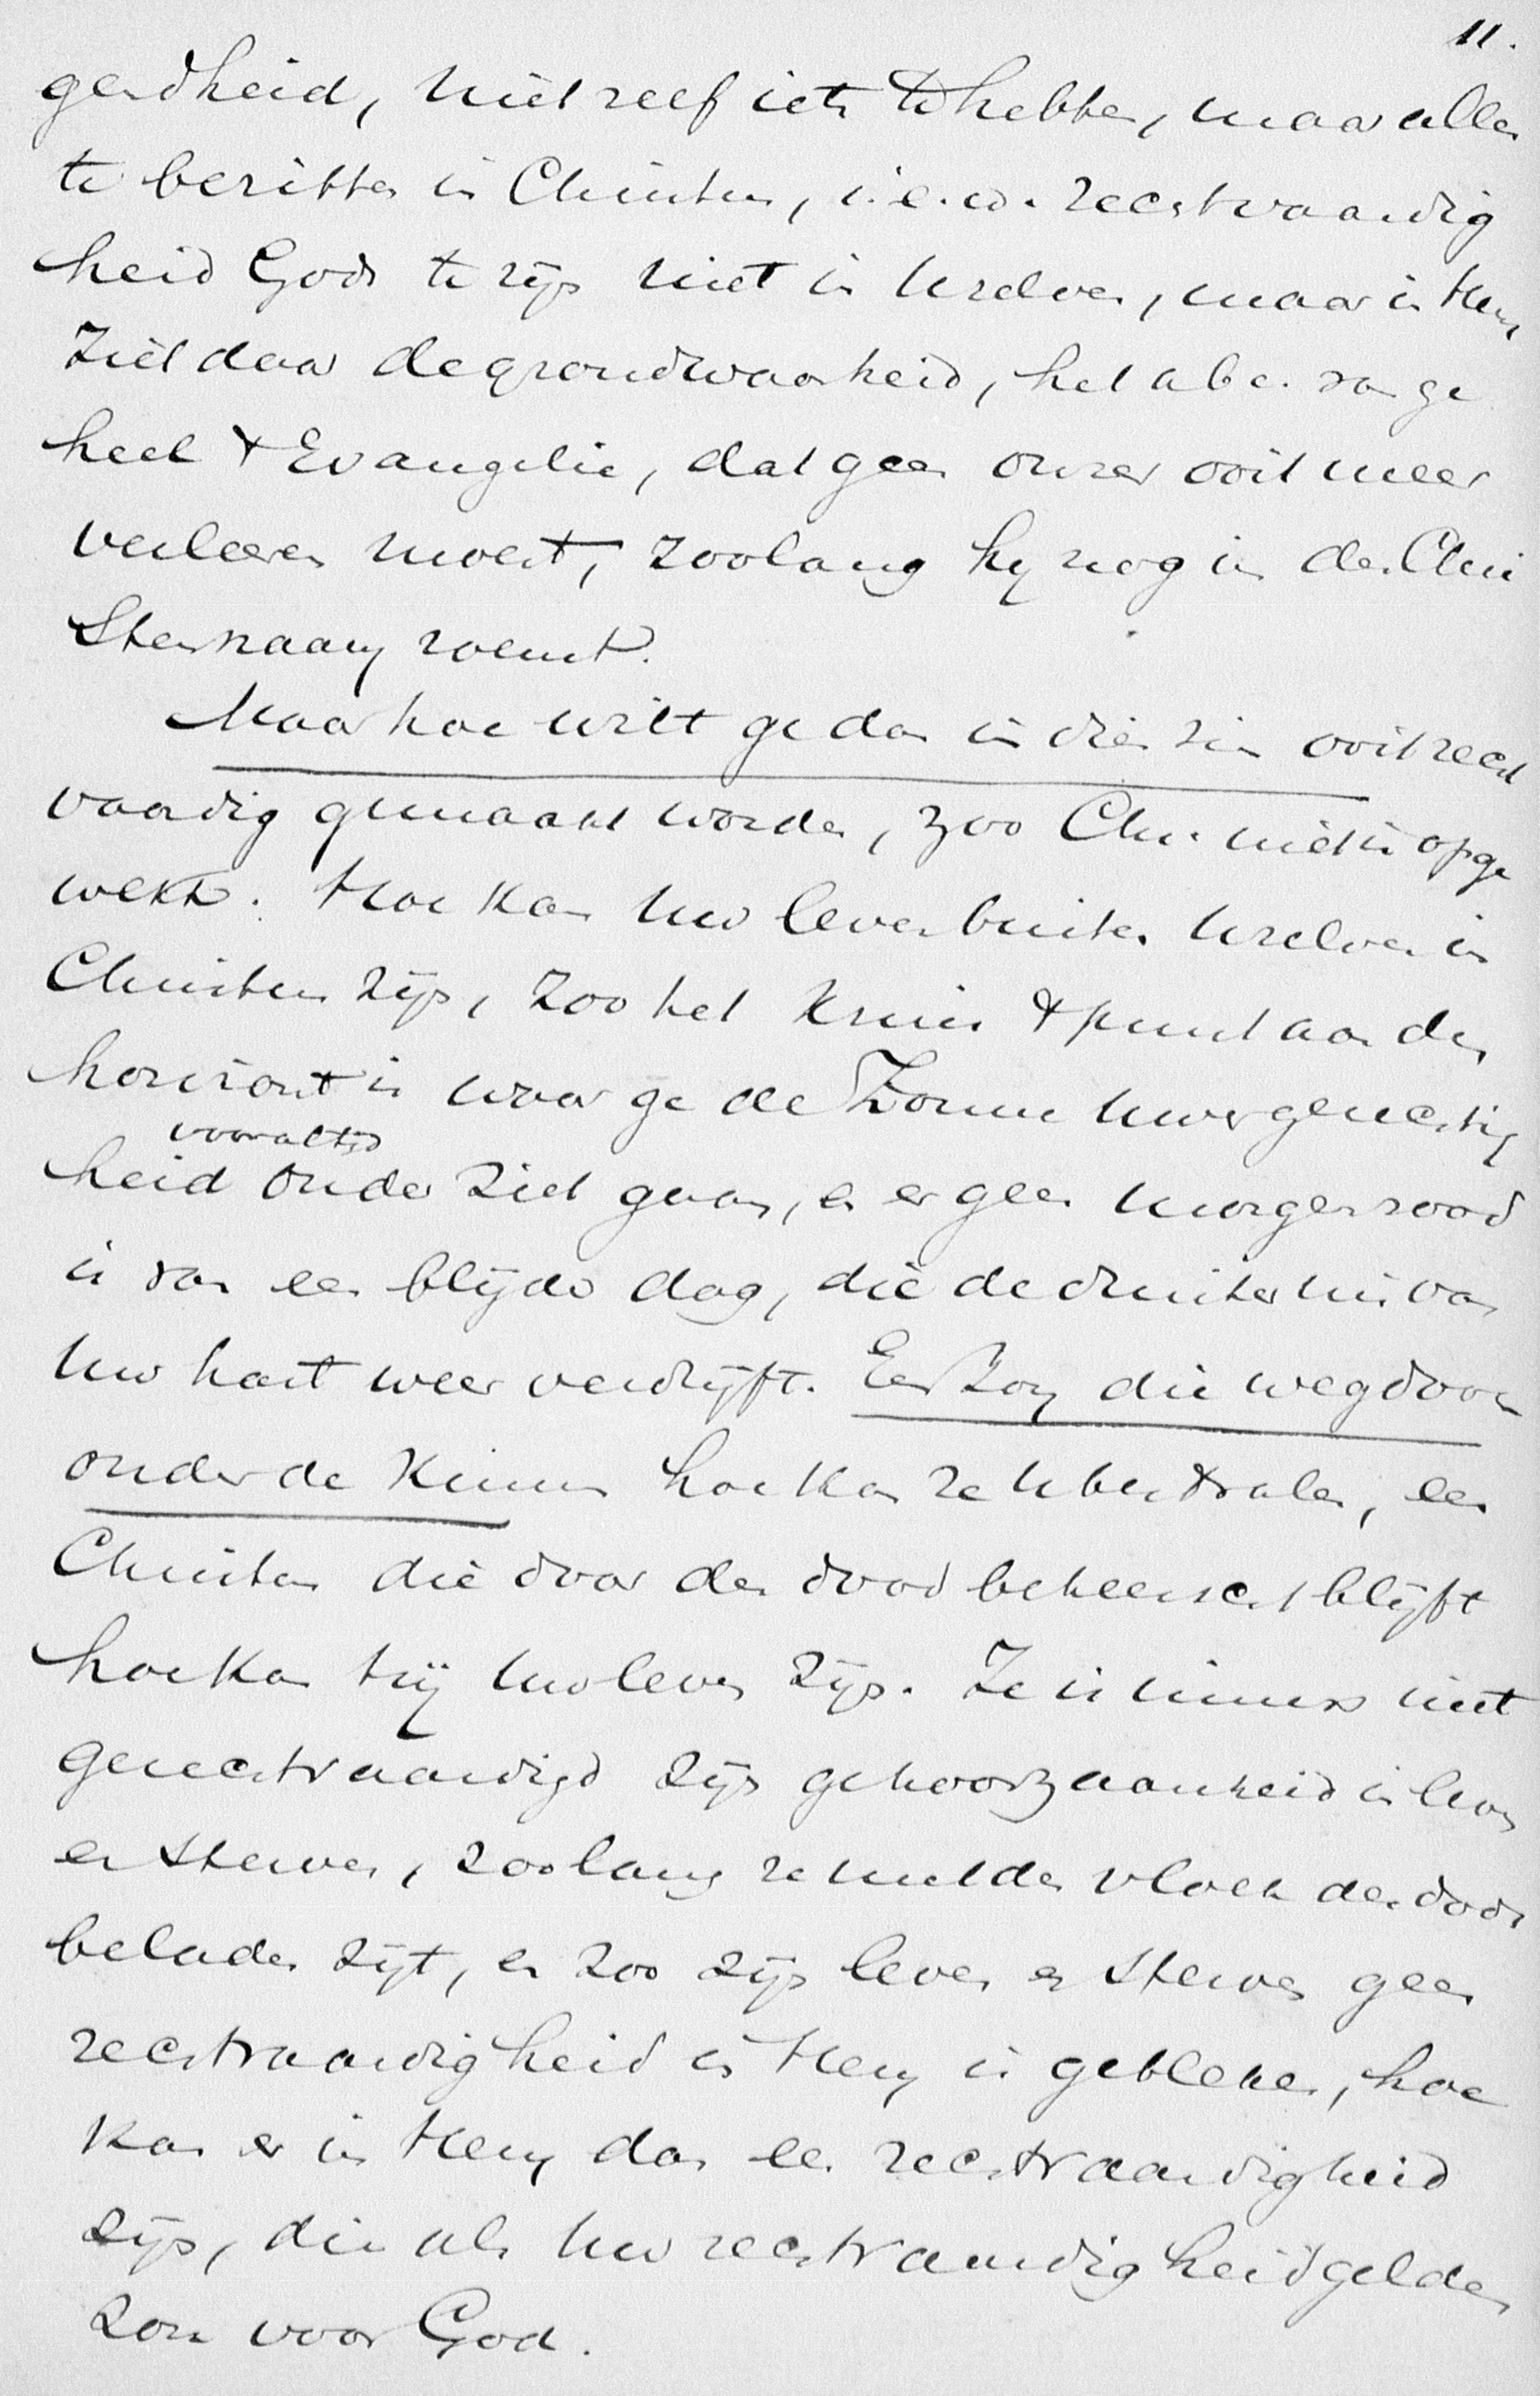 11.
gendheid, niet zelf iets te hebben, maar alles
te bezitten in Christus, i.e.w. rechtvaardig
heid Gods te zijn niet in Uzelven, maar in Hem
Ziet daar de grondwaarheid, het a b c. van ge
heel 't Evangelie, dat geen onzer ooit meer
verleeren moest, zoolang hij nog in den Chri
stennaam roemt.
Maar hoe wilt ge dan in dien zin ooit recht
vaardig gemaakt worden, zoo Chr. niet is opge
wekt. Hoe kan Uw leven buiten Uzelven in
Christus zijn, zoo het Kruis 't punt aan den
horizont is waar ge de Zonne Uwer gerechtig
vooraltijd
heid onder ziet gaan, en er geen morgenrood
is van een blijde dag, die de duisternis van
Uw hart weer verdrijft. Een Zon die wegdook
onder de Kimme hoe kan ze U bestralen, een
Christus die door den dood beheerscht blijft
hoe kan hij Uw leven zijn. Ze is immers niet
gerechtvaardigd zijn gehoorzaamheid in leven
en sterven, zoolang ze met den vloek des doods
beladen zijt, en zoo zijn leven en sterven geen
rechtvaardigheid in Hem is gebleken, hoe
kan er in Hem dan een rechtvaardigheid
zijn, die als Uw rechtvaardigheid gelden
zou voor God.